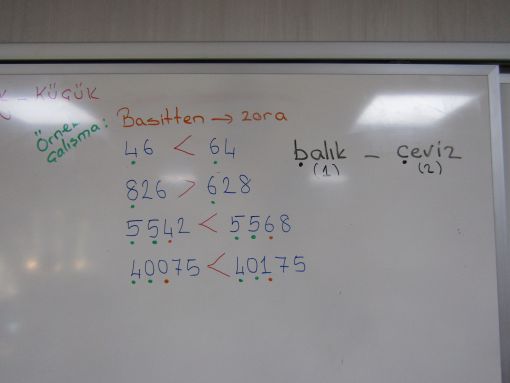 K - KÜÇÜK
Örnek Çalışma: Basitten → zora
46 < 64
balık - çeviz
(1) (2)
826 > 628
5542 < 5568
40075 < 40175